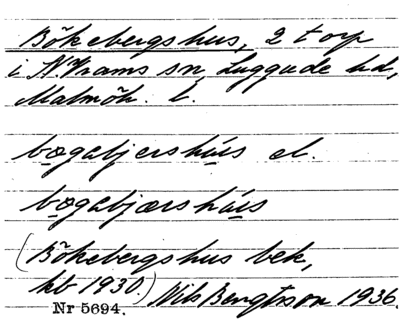 Bökebergshus, 2 torp
i N. Vrams sn, Luggude hd,
Malmöh. l.
bøgabjershús el.
bøgabjærshús
(Bökebergshus bek,
kb 1930.) Nils Bengtsson 1936.
Nr 5694.